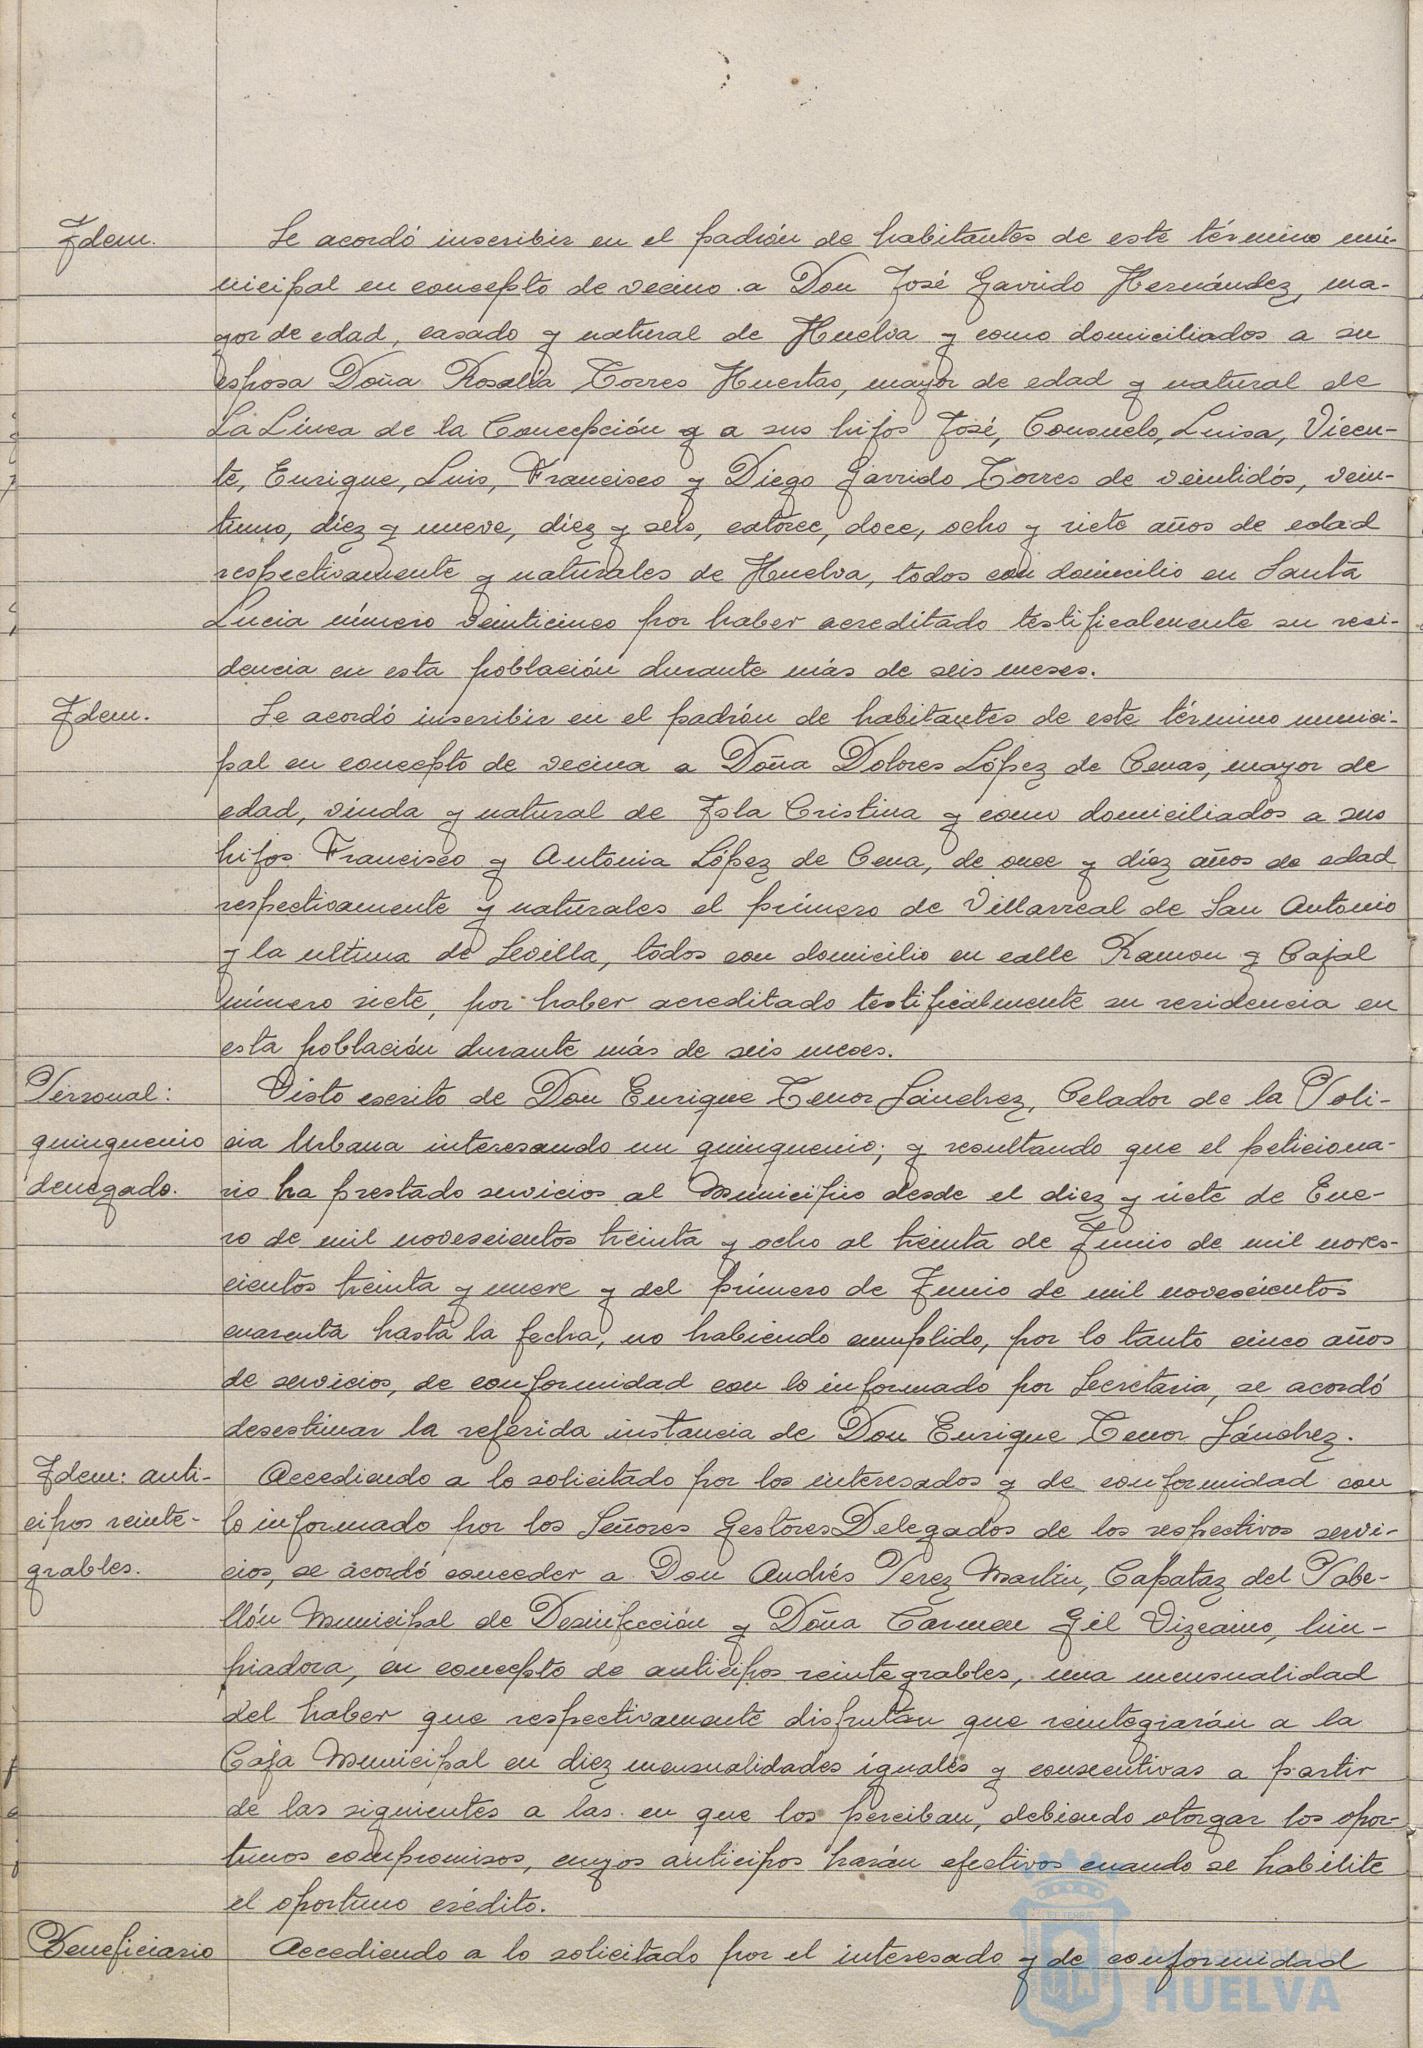 Idem.
Se acordó inscribir en el padrón de habitantes de este término mu-
nicipal en concepto de vecino a Don José Garrido Hernández, ma-
yor de edad, casado y natural de Huelva y como domiciliados a su
esposa Doña Rosalía Torres Huertas, mayor de edad y natural de
La Línea de la Concepción y a sus hijos José, Consuelo, Luisa, Vicen-
te, Enrique, Luis, Francisco y Diego Garrido Torres de veintidós, vein-
tiuno, diez y nueve, diez y seis, catorce, doce, ocho y siete años de edad
respectivamente y naturales de Huelva, todos con domicilio en Santa
Lucia número veinticinco por haber acreditado testificalmente su resi-
dencia en esta población durante más de seis meses.
Idem.
Se acordó inscribir en el padrón de habitantes de este término munici-
pal en concepto de vecina a Doña Dolores López de Cenas, mayor de
edad, viuda y natural de Isla Cristina y como domiciliados a sus
hijos Francisco y Antonia López de Cena, de once y diez años de edad
respectivamente y naturales el primero de Villarreal de San Antonio
y la ultima de Sevilla, todos con domicilio en calle Ramon y Cajal
número siete, por haber acreditado testificalmente su residencia en
esta población durante más de seis meses.
Personal:
quinquenio
denegado.
Visto escrito de Don Enrique Tenor Sánchez, Celador de la Poli-
cia Urbana interesando un quinquenio; y resultando que el peticiona-
rio ha prestado servicios al Municipio desde el diez y siete de Ene-
ro de mil novescientos treinta y ocho al treinta de Junio de mil noves-
cientos treinta y nueve y del primero de Junio de mil novescientos
cuarenta hasta la fecha, no habiendo cumplido, por lo tanto cinco años
de servicios, de conformidad con lo informado por Secretaria, se acordó
desestimar la referida instancia de Don Enrique Tenor Sánchez.
Idem: anti-
cipos reinte-
grables.
Accediendo a lo solicitado por los interesados y de conformidad con
lo informado por los Señores Gestores Delegados de los respectivos servi-
cios, se acordó conceder a Don Andrés Perez Martín, Capataz del Pabe-
llón Municipal de Desinfección y Doña Carmen Gil Vizcaino, lim-
piadora, en concepto de anticipos reintegrables, una mensualidad
del haber que respectivamente disfrutan que reintegrarán a la
Caja Municipal en diez mensualidades iguales y consecutivas a partir
de las siguientes a las en que los perciban, debiendo otorgar los opor-
tunos compromisos, cuyos anticipos harán efectivos cuando se habilite
el oportuno crédito.
Beneficiario
Accediendo a lo solicitado por el interesado y de conformidad
Ayuntamiento de
HUELVA